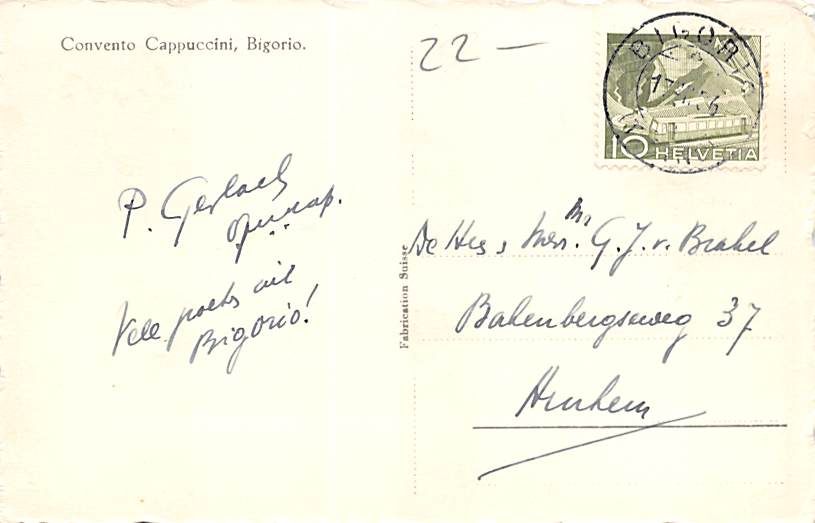 Convento Cappuccini, Bigorio.
22 —
BIGORIO
10 HELVETIA
P. Gerlach
o.f.m. cap.
Vele groets uit
Bigorio!
Fabrication Suisse
De Heer, Mevr. G. J. v. Brakel
Bakenbergseweg 37
Arnhem